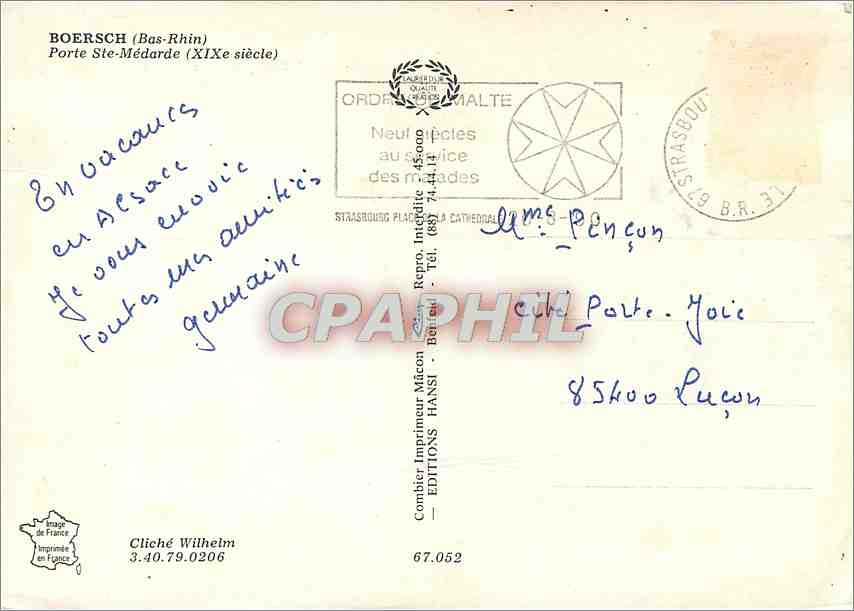 BOERSCH (Bas-Rhin)
Porte Ste-Médarde (XIXe siècle)
En vacances
en Alsace
Je vous envoie
toutes mes amitiés
germaine
LAURIER D'OR
QUALITÉ
ORDRE DE MALTE
Neuf siècles
au service
des malades
STRASBOURG PLACE DE LA CATHEDRALE
67 STRASBOU
B.R. 31
Mme Pinçon
cité Porte-Joie
85400 Luçon
CPAPHIL
Combier Imprimeur Mâcon Repro. Interdite - 45-000
— EDITIONS HANSI - Benfeld - Tél. (88) 74.44.14 —
Image
de France
Imprimée
en France
Cliché Wilhelm
3.40.79.0206
67.052